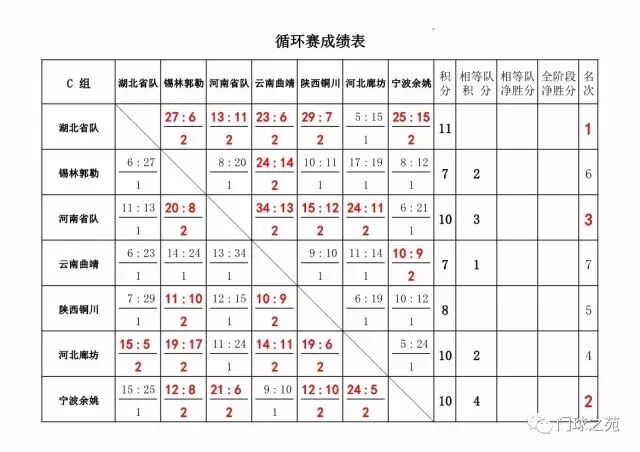 循环赛成绩表
C 组 湖北省队 锡林郭勒 河南省队 云南曲靖 陕西铜川 河北廊坊 宁波余姚 积分 相等队积 分 相等队净胜分 全阶段净胜分 名次
湖北省队 27 : 6 13 : 11 23 : 6 29 : 7 5 : 15 25 : 15 11 1
2 2 2 2 1 2
锡林郭勒 6 : 27 8 : 20 24 : 14 10 : 11 17 : 19 8 : 12 7 2 6
1 1 2 1 1 1
河南省队 11 : 13 20 : 8 34 : 13 15 : 12 24 : 11 6 : 21 10 3 3
1 2 2 2 2 1
云南曲靖 6 : 23 14 : 24 13 : 34 9 : 10 11 : 14 10 : 9 7 1 7
1 1 1 1 1 2
陕西铜川 7 : 29 11 : 10 12 : 15 10 : 9 6 : 19 10 : 12 8 5
1 2 1 2 1 1
河北廊坊 15 : 5 19 : 17 11 : 24 14 : 11 19 : 6 5 : 24 10 2 4
2 2 1 2 2 1
宁波余姚 15 : 25 12 : 8 21 : 6 9 : 10 12 : 10 24 : 5 10 4 2
1 2 2 1 2 2
门球之苑